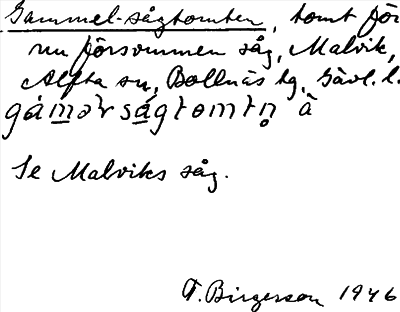 Gammel-sågtomten, tomt för
nu försvunnen såg, Malvik,
Alfta sn, Bollnäs tg, Gävl. l.
Se Malviks såg.
T. Birgersson 1946